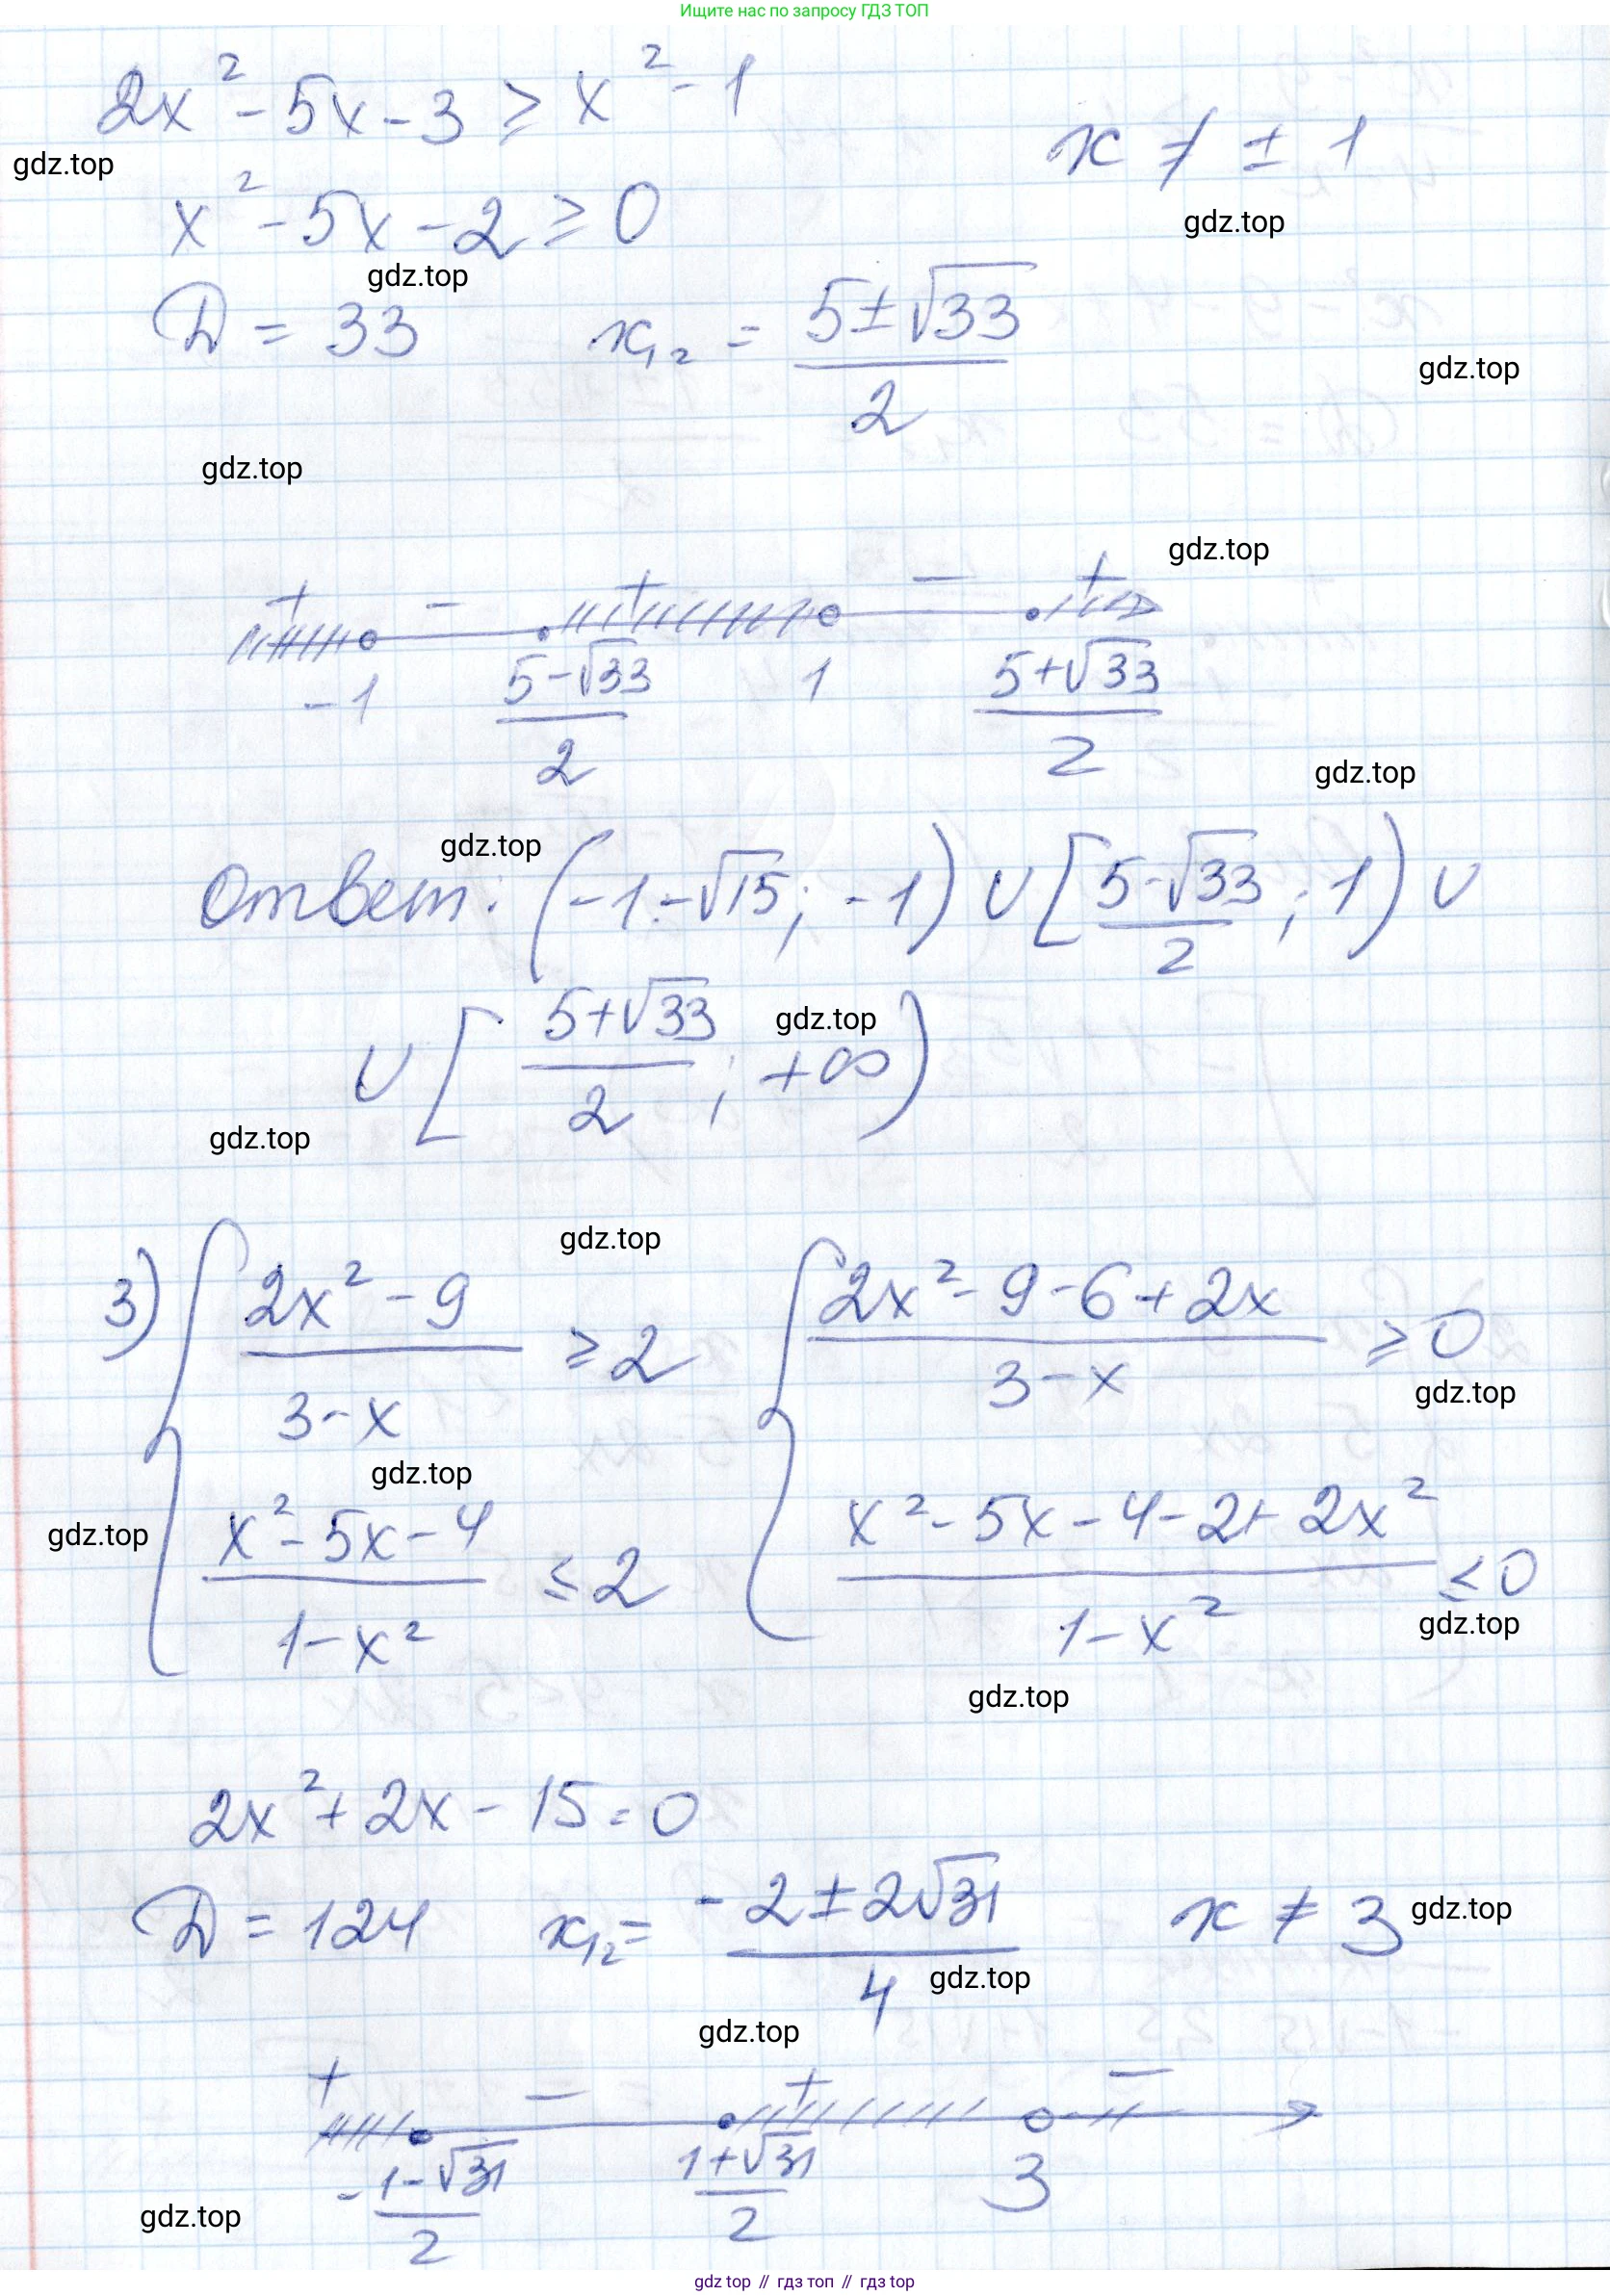 Ищите нас по запросу ГДЗ ТОП
2x² - 5x - 3 ≥ x² - 1
x ≠ ± 1
gdz.top
gdz.top
x² - 5x - 2 ≥ 0
gdz.top
D = 33 x₁,₂ = (5 ± √33)/2
gdz.top
gdz.top
gdz.top
+ - + - +
-1 (5-√33)/2 1 (5+√33)/2
gdz.top
gdz.top
Ответ: (-1-√15; -1) ∪ [(5-√33)/2; 1) ∪
∪ [(5+√33)/2; +∞)
gdz.top
gdz.top
gdz.top
3) { (2x² - 9)/(3 - x) ≥ 2 { (2x² - 9 - 6 + 2x)/(3 - x) ≥ 0
gdz.top
gdz.top
gdz.top
(x² - 5x - 4)/(1 - x²) ≤ 2 (x² - 5x - 4 - 2 + 2x²)/(1 - x²) ≤ 0
gdz.top
gdz.top
2x² + 2x - 15 = 0
D = 124 x₁,₂ = (-2 ± 2√31)/4 x ≠ 3
gdz.top
gdz.top
gdz.top
+ - + -
-(1-√31)/2 (1+√31)/2 3
gdz.top
gdz top // гдз топ // gdz top